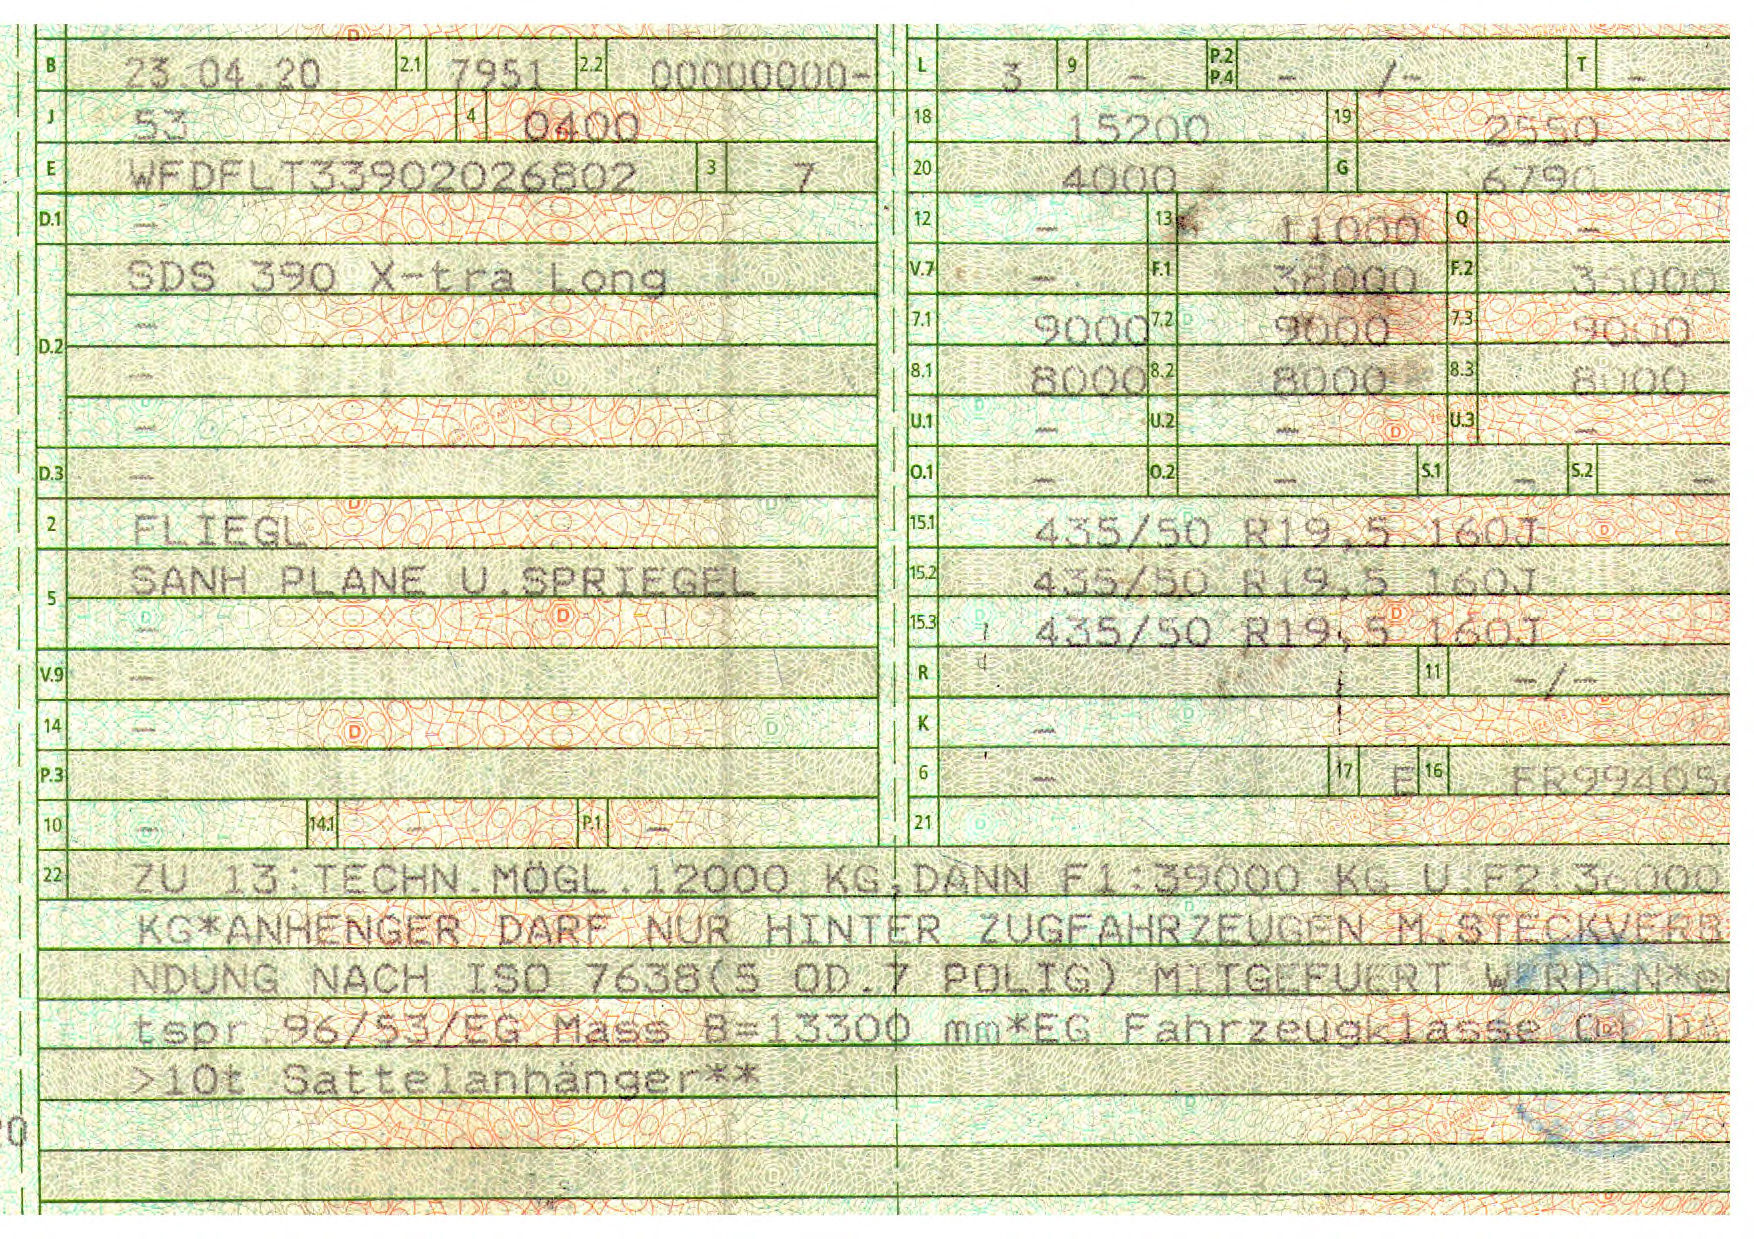 B 23.04.20 2.1 7951 2.2 00000000-
J 53 4 0400
E WFDFLT33902026802 3 7
D.1 -
SDS 390 X-tra Long
D.2 -
-
-
D.3 -
2 FLIEGL
5 SANH PLANE U.SPRIEGEL
-
V.9 -
14 -
P.3
10 - 14.1 - P.1 -
L 3 9 - P.2 P.4 - /- T -
18 15200 19 2550
20 4000 G 6790
12 - 13 11000 Q -
V.7 - F.1 38000 F.2 35000
7.1 9000 7.2 9000 7.3 9000
8.1 8000 8.2 8000 8.3 8000
U.1 - U.2 - U.3 -
O.1 - O.2 - S.1 - S.2 -
15.1 435/50 R19,5 160J
15.2 435/50 R19,5 160J
15.3 435/50 R19,5 160J
R 11 -/-
K -
6 - 17 E 16 FR99405
21
22 ZU 13:TECHN.MÖGL.12000 KG,DANN F1:39000 KG U.F2:36000
KG*ANHENGER DARF NUR HINTER ZUGFAHRZEUGEN M.STECKVERB
NDUNG NACH ISO 7638(5 OD.7 POLIG) MITGEFUERT WERDEN*e
tspr.96/53/EG Mass B=13300 mm*EG Fahrzeugklasse O4 DA
>10t Sattelanhänger**
0